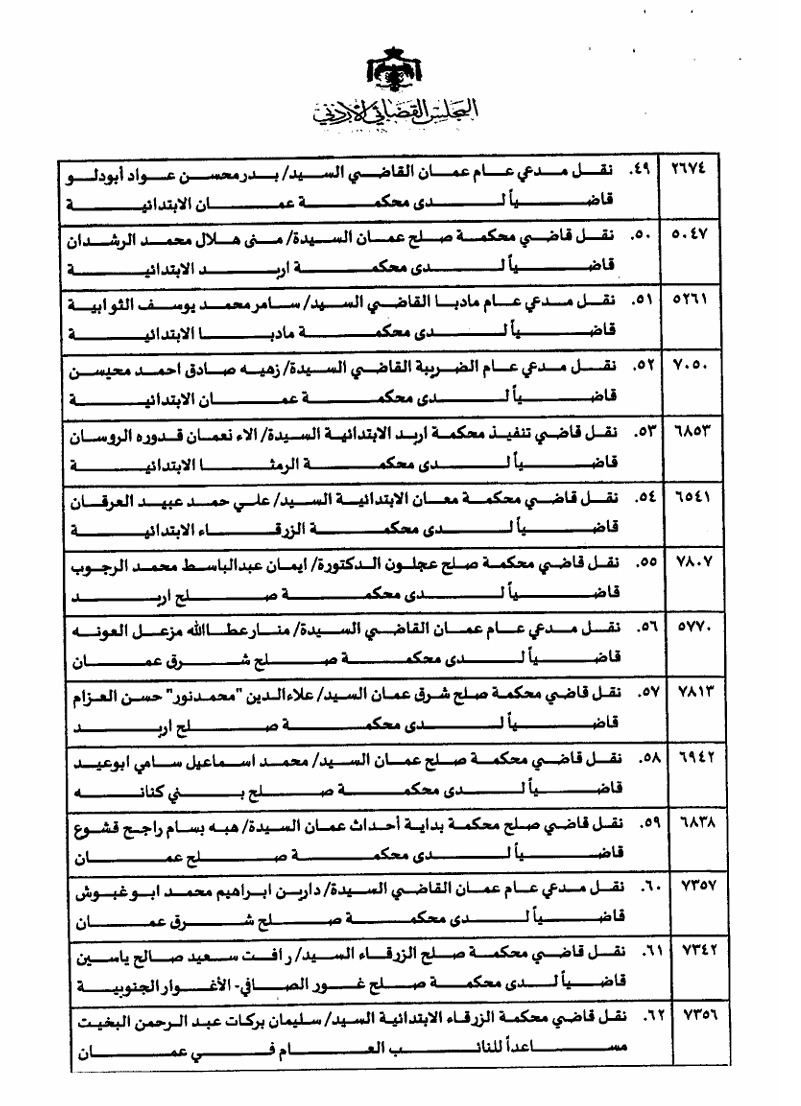 المجلس القضائي الأردني
٢٦٧٤ ٤٩. نقل مدعي عام عمان القاضي السيد/ بدر محسن عواد أبودلو
قاضياً لدى محكمة عمان الابتدائية
٥٠٤٧ ٥٠. نقل قاضي محكمة صلح عمان السيدة/ منى هلال محمد الرشدان
قاضياً لدى محكمة اربد الابتدائية
٥٢٦١ ٥١. نقل مدعي عام مادبا القاضي السيد/ سامر محمد يوسف الثوابية
قاضياً لدى محكمة مادبا الابتدائية
٧٠٥٠ ٥٢. نقل مدعي عام الضريبة القاضي السيدة/ زهيه صادق احمد محيسن
قاضياً لدى محكمة عمان الابتدائية
٦٨٥٣ ٥٣. نقل قاضي تنفيذ محكمة اربد الابتدائية السيدة/ الاء نعمان قدوره الروسان
قاضياً لدى محكمة الرمثا الابتدائية
٦٥٤١ ٥٤. نقل قاضي محكمة معان الابتدائية السيد/ علي حمد عبيد العرقان
قاضياً لدى محكمة الزرقاء الابتدائية
٧٨٠٧ ٥٥. نقل قاضي محكمة صلح عجلون الدكتورة/ ايمان عبدالباسط محمد الرجوب
قاضياً لدى محكمة صلح اربد
٥٧٧٠ ٥٦. نقل مدعي عام عمان القاضي السيدة/ منار عطاالله مزعل العونه
قاضياً لدى محكمة صلح شرق عمان
٧٨١٣ ٥٧. نقل قاضي محكمة صلح شرق عمان السيد/ علاءالدين "محمدنور" حسن العزام
قاضياً لدى محكمة صلح اربد
٦٩٤٢ ٥٨. نقل قاضي محكمة صلح عمان السيد/ محمد اسماعيل سامي ابوعيد
قاضياً لدى محكمة صلح بني كنانه
٦٨٣٨ ٥٩. نقل قاضي صلح محكمة بداية أحداث عمان السيدة/ هبه بسام راجح قشوع
قاضياً لدى محكمة صلح عمان
٧٣٥٧ ٦٠. نقل مدعي عام عمان القاضي السيدة/ دارين ابراهيم محمد ابوغبوش
قاضياً لدى محكمة صلح شرق عمان
٧٣٤٢ ٦١. نقل قاضي محكمة صلح الزرقاء السيد/ رافت سعيد صالح ياسين
قاضياً لدى محكمة صلح غور الصافي- الأغوار الجنوبية
٧٣٥٦ ٦٢. نقل قاضي محكمة الزرقاء الابتدائية السيد/ سليمان بركات عبد الرحمن البخيت
مساعداً للنائب العام في عمان